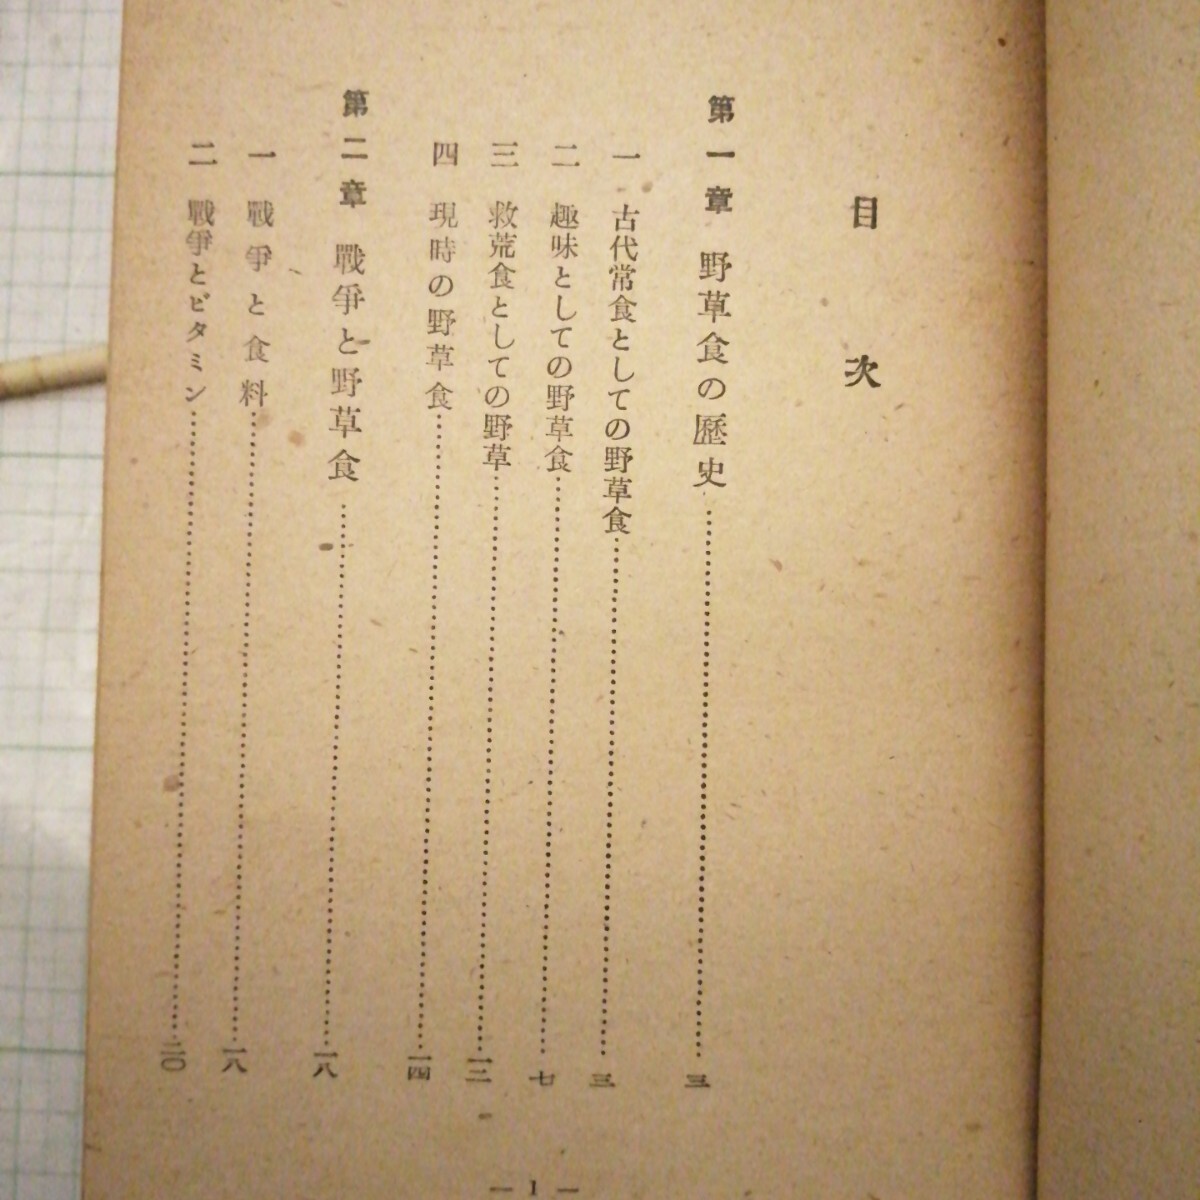 目次
第一章 野草食の歷史……三
一 古代常食としての野草食……三
二 趣味としての野草食……七
三 救荒食としての野草……一二
四 現時の野草食……一四
第二章 戰爭と野草食……一八
一 戰爭と食料……一八
二 戰爭とビタミン……二〇
— 1 —